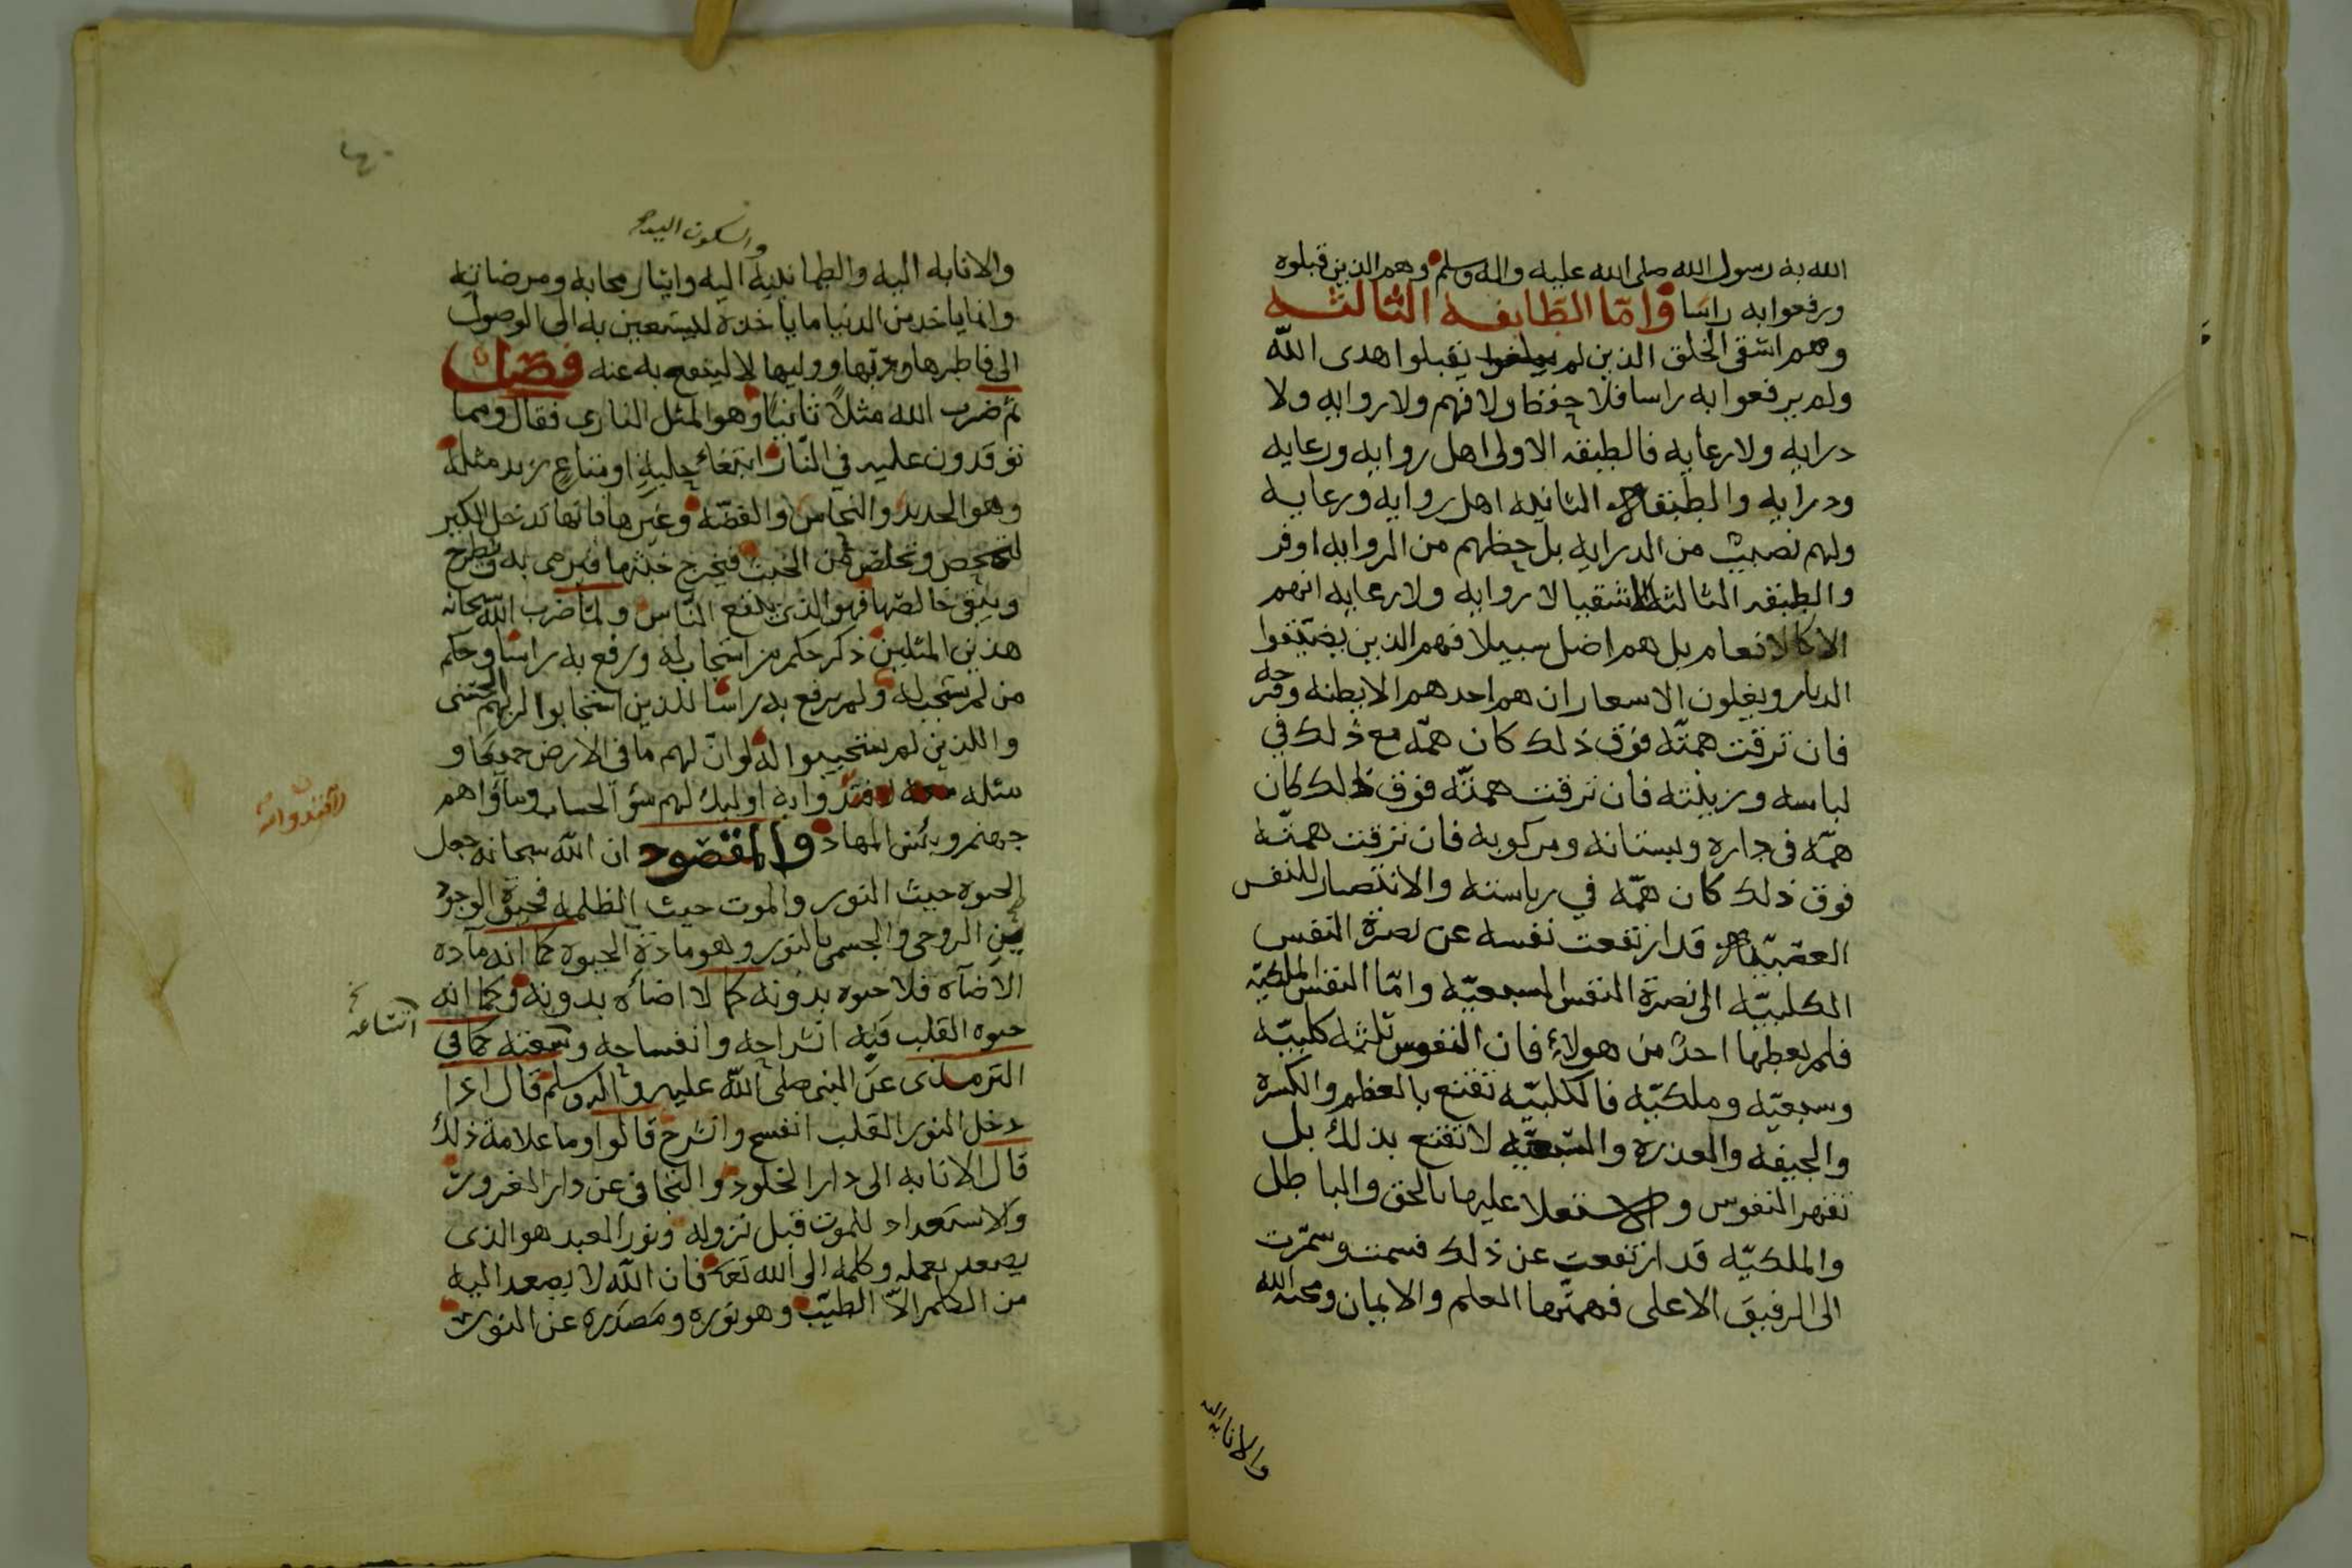 الله به رسول الله صلى الله عليه واله وسلم وهم الذين قبلوه
ورفعوا به راسا واما الطايفه الثالثه
وهم اشقى الخلق الذين لم يقبلوا هدى الله
ولم يرفعوا به راسا فلا حفظ ولا فهم ولا روايه ولا
درايه ولا رعايه فالطبقه الاولى اهل روايه ورعايه
ودرايه والطبقه الثانيه اهل روايه ورعايه
ولهم نصيب من الدرايه بل حظهم من الروايه اوفر
والطبقه الثالثه الاشقيا لا روايه ولا رعايه انهم
الا كالانعام بل هم اضل سبيلا فهم الذين يضيقوا
الديار ويغلون الاسعار ان هم احدهم الا بطنه وفرجه
فان ترقت همته فوق ذلك كان همه مع ذلك في
لباسه وزينته فان ترقت همته فوق ذلك كان
همه في داره وبستانه ومركوبه فان ترقت همته
فوق ذلك كان همه في رياسته والانتصار للنفس
قد ارتفعت نفسه عن نصرة النفس
الكلبيه الى نصرة النفس السبعيه واما النفس الملكيه
فلم يعطها احد من هولاء فان النفوس ثلثه كلبيه
وسبعيه وملكيه فالكلبيه تقنع بالعظم والكسرة
والجيفه والعذره والسبعيه لا تقنع بذلك بل
تقهر النفوس والاستعلا عليها بالحق والباطل
والملكيه قد ارتفعت عن ذلك فسمت وشمرت
الى الرفيق الاعلى فهمتها العلم والايمان ومحبه الله
والانابه اليه
والسكون اليه
والانابه اليه والطمانينه اليه وايثار محابه ومرضاته
وانما ياخذ من الدنيا ما ياخذه ليستعين به الى الوصول
الى فاطرها وربها ووليها لا لينقطع به عنه فصل
ثم ضرب الله مثلا ثانيا وهو المثل الناري فقال ومما
توقدون عليه في النار ابتغاء حلية او متاع زبد مثله
وهو الحديد والنحاس والفضه وغيرها فانها تدخل الكير
لتمحص وتخلص من الخبث فيخرج خبثها فيرمى به ويطرح
ويبقى خالصها فهو الذي ينفع الناس ولما ضرب الله سبحانه
هذين المثلين ذكر حكم من استجاب له ورفع به راسا وحكم
من لم يستجب له ولم يرفع به راسا للذين استجابوا لربهم الحسنى
والذين لم يستجيبوا له لو ان لهم ما في الارض جميعا و
مثله معه لافتدوا به اوليك لهم سؤ الحساب وماواهم
لافتدوا به
جهنم وبئس المهاد والمقصود ان الله سبحانه جعل
الحيوه حيث النور والموت حيث الظلمه فحيوة الوجود
ين الروحي والجسمي بالنور وهو مادة الحيوه كما انه مادة
الاضآه فلا حيوه بدونه كما لا اضاه بدونه وكما انه
حيوه القلب فبه انشراحه وانفساحه وسعته كما في
اتساعه
الترمذي عن النبي صلى الله عليه واله وسلم قال اذا
دخل النور القلب انفسح وانشرح قالوا وما علامة ذلك
قال الانابه الى دار الخلود والتجافي عن دار الغرور
والاستعداد للموت قبل نزوله ونور العبد هو الذي
يصعد بعمله وكلمه الى الله تعا فان الله لا يصعد اليه
من الكلم الا الطيب وهو نوره ومصدره عن النور